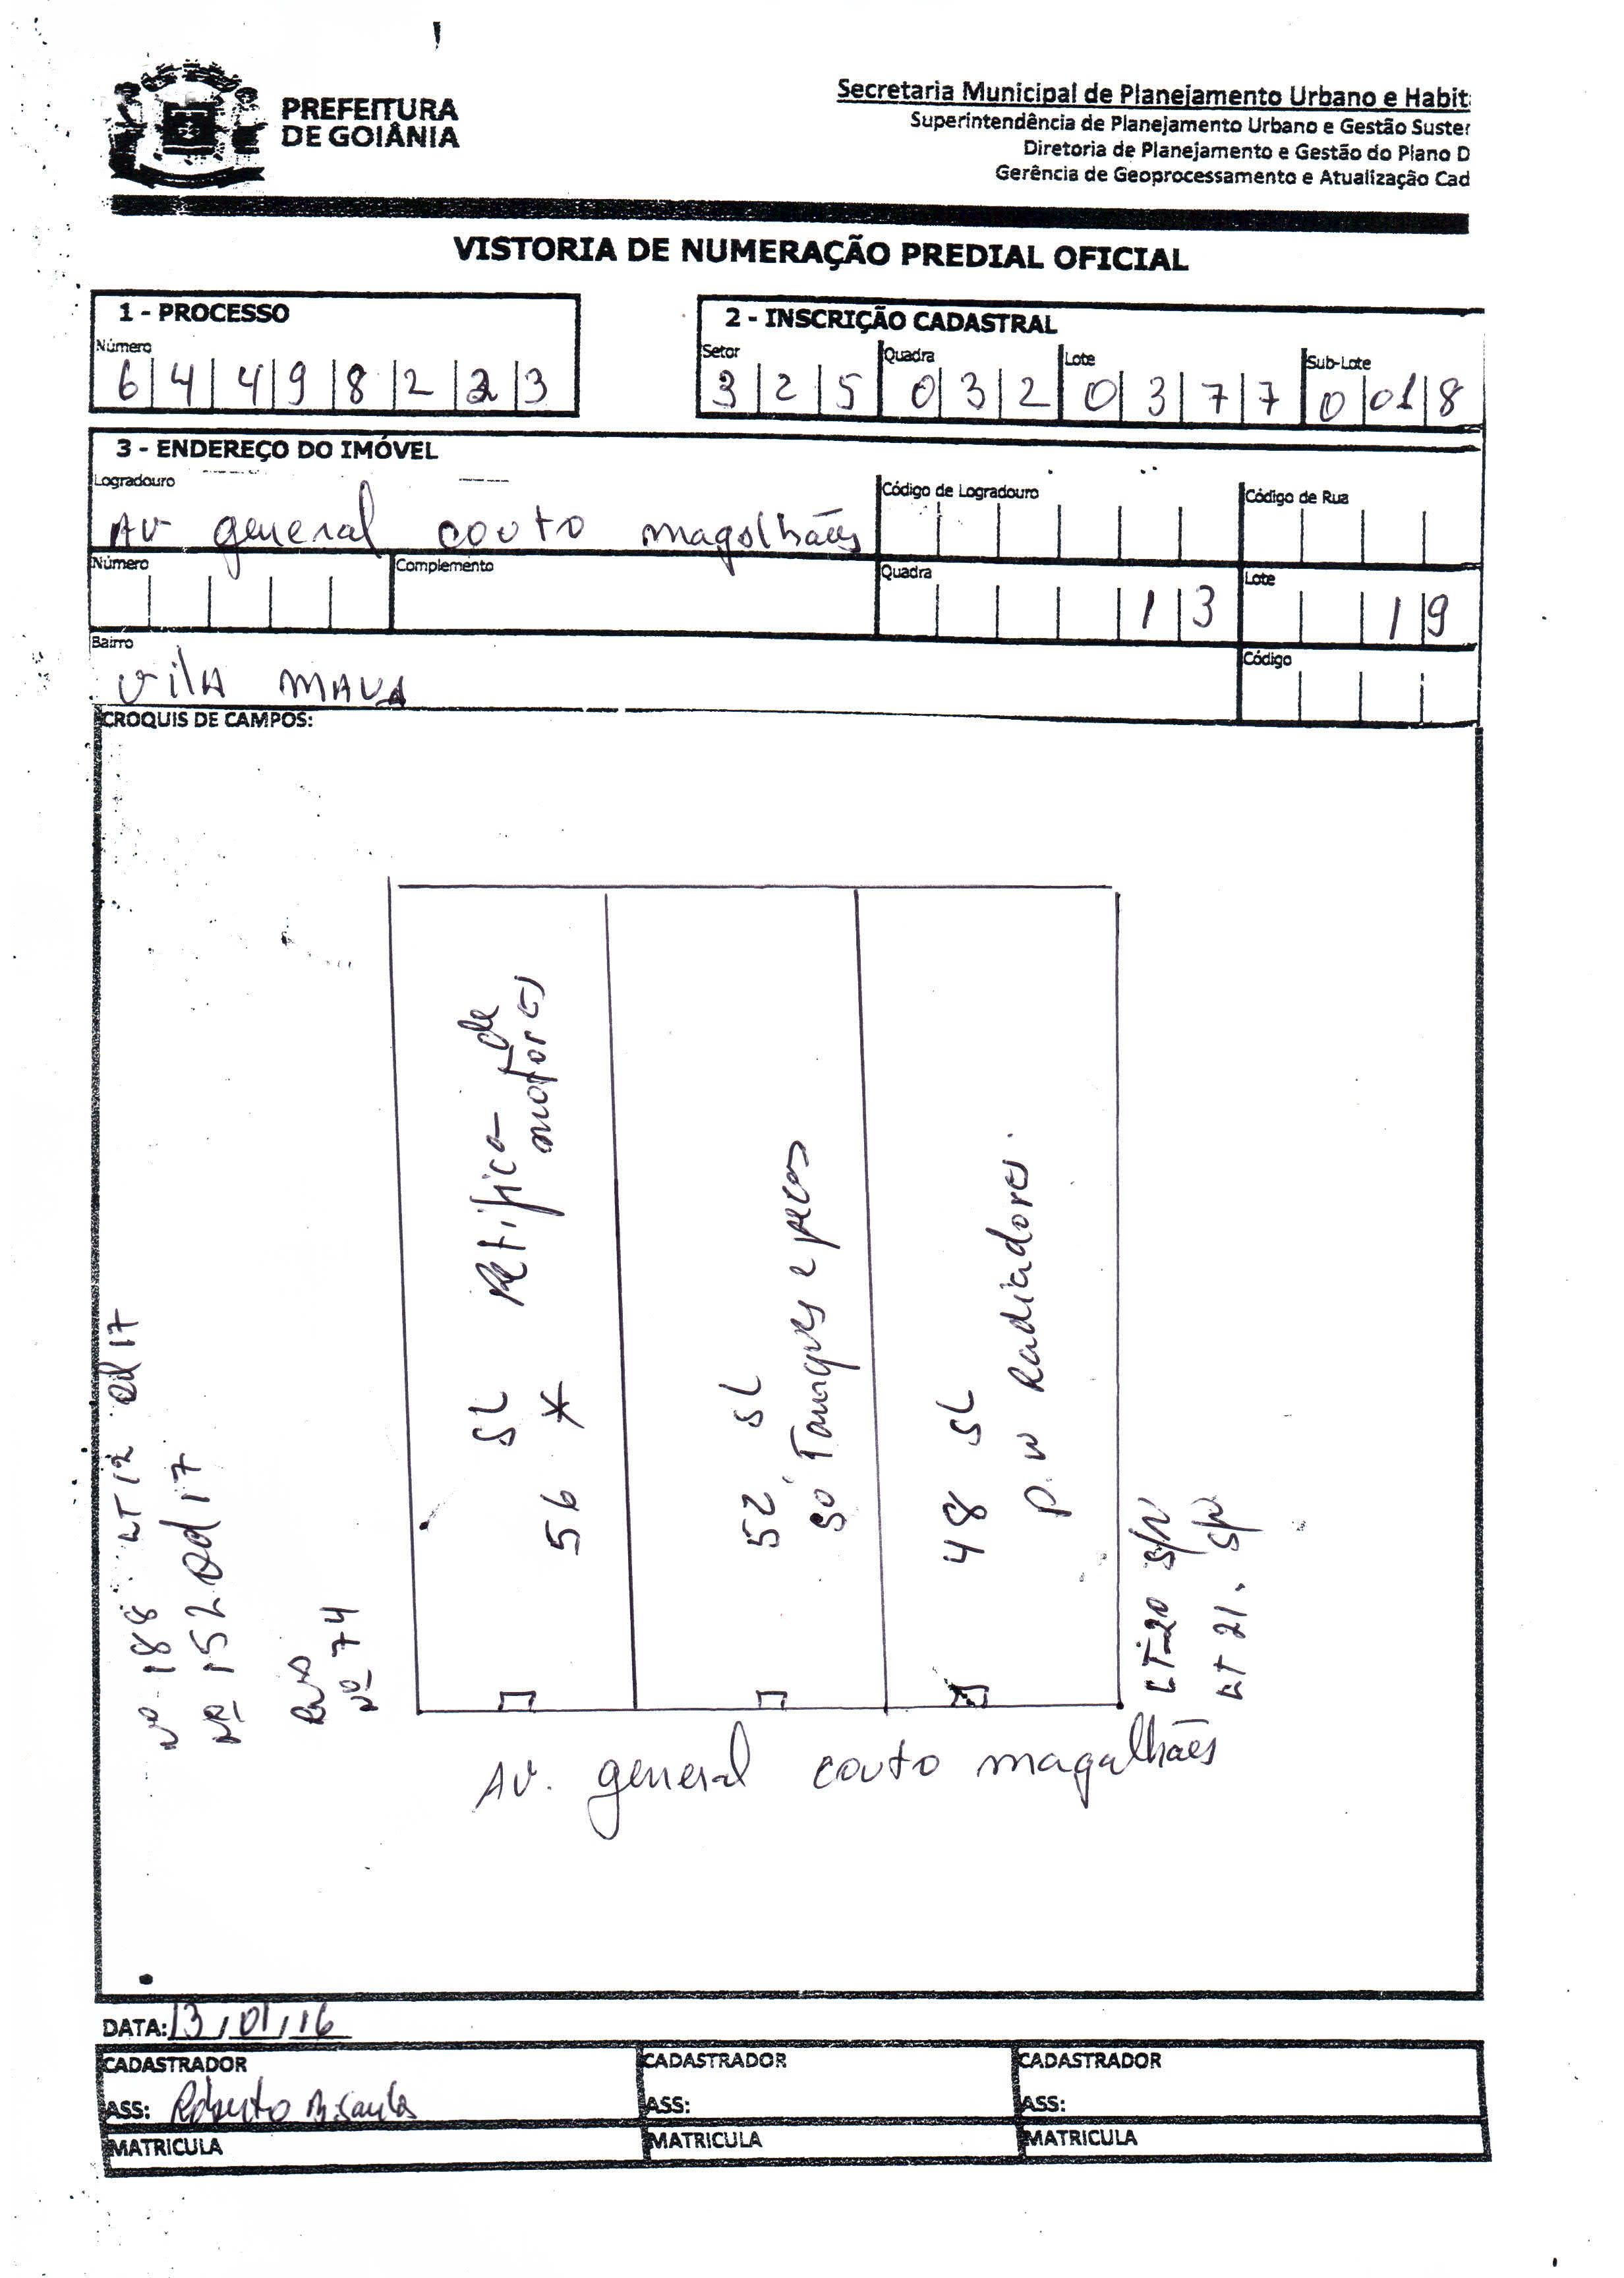 PREFEITURA
DE GOIÂNIA
Secretaria Municipal de Planejamento Urbano e Habit
Superintendência de Planejamento Urbano e Gestão Suster
Diretoria de Planejamento e Gestão do Plano D
Gerência de Geoprocessamento e Atualização Cad
VISTORIA DE NUMERAÇÃO PREDIAL OFICIAL
1 - PROCESSO
Número
6 4 4 9 8 2 2 3
2 - INSCRIÇÃO CADASTRAL
Setor Quadra Lote Sub-Lote
3 2 5 0 3 2 0 3 7 7 0 01 8
3 - ENDEREÇO DO IMÓVEL
Logradouro Código de Logradouro Código de Rua
AV general couto magalhães
Número Complemento Quadra Lote
1 3 1 9
Bairro Código
VilA MAUA
CROQUIS DE CAMPOS:
Nº 188 LT 12 Qd 17
Nº 152 Qd 17
Nº 74
SL Retifica de
motores
56 *
52 SL
Só Tanques e peças
48 SL
P. W Radiadores.
LT-20 S/N
LT 21. S/N
AV. general couto magalhães
DATA: 13/01/16
CADASTRADOR CADASTRADOR CADASTRADOR
ASS: Roberto ASS: ASS:
MATRICULA MATRICULA MATRICULA